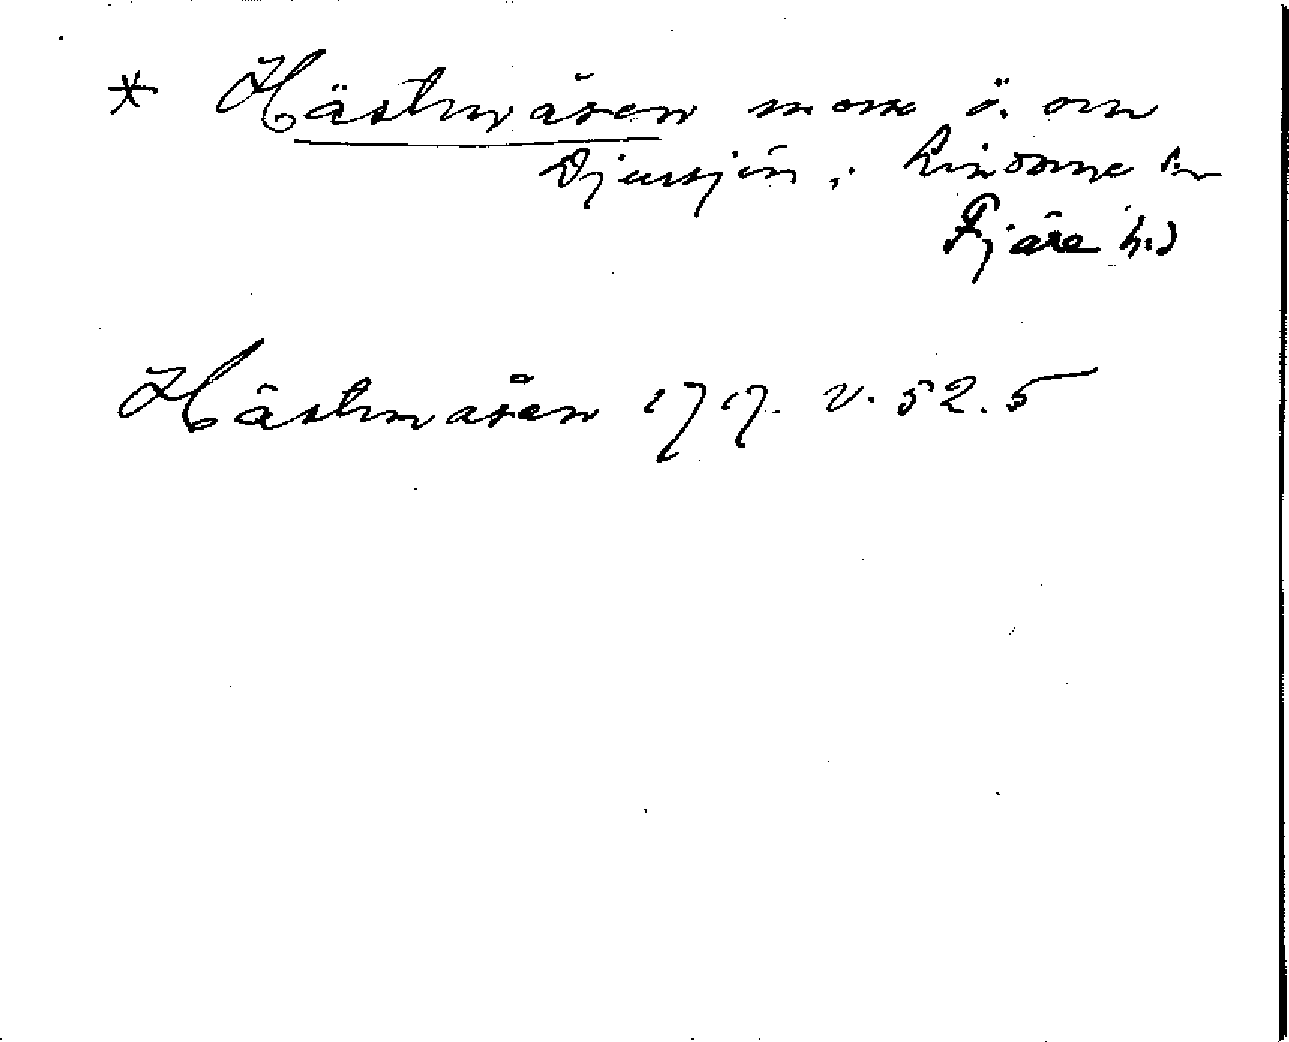 * Hästmåsen mosse ö. om
Djursjön, Lindome sn
Fjäre hd
Hästmåsen 1717. V. 52. 5